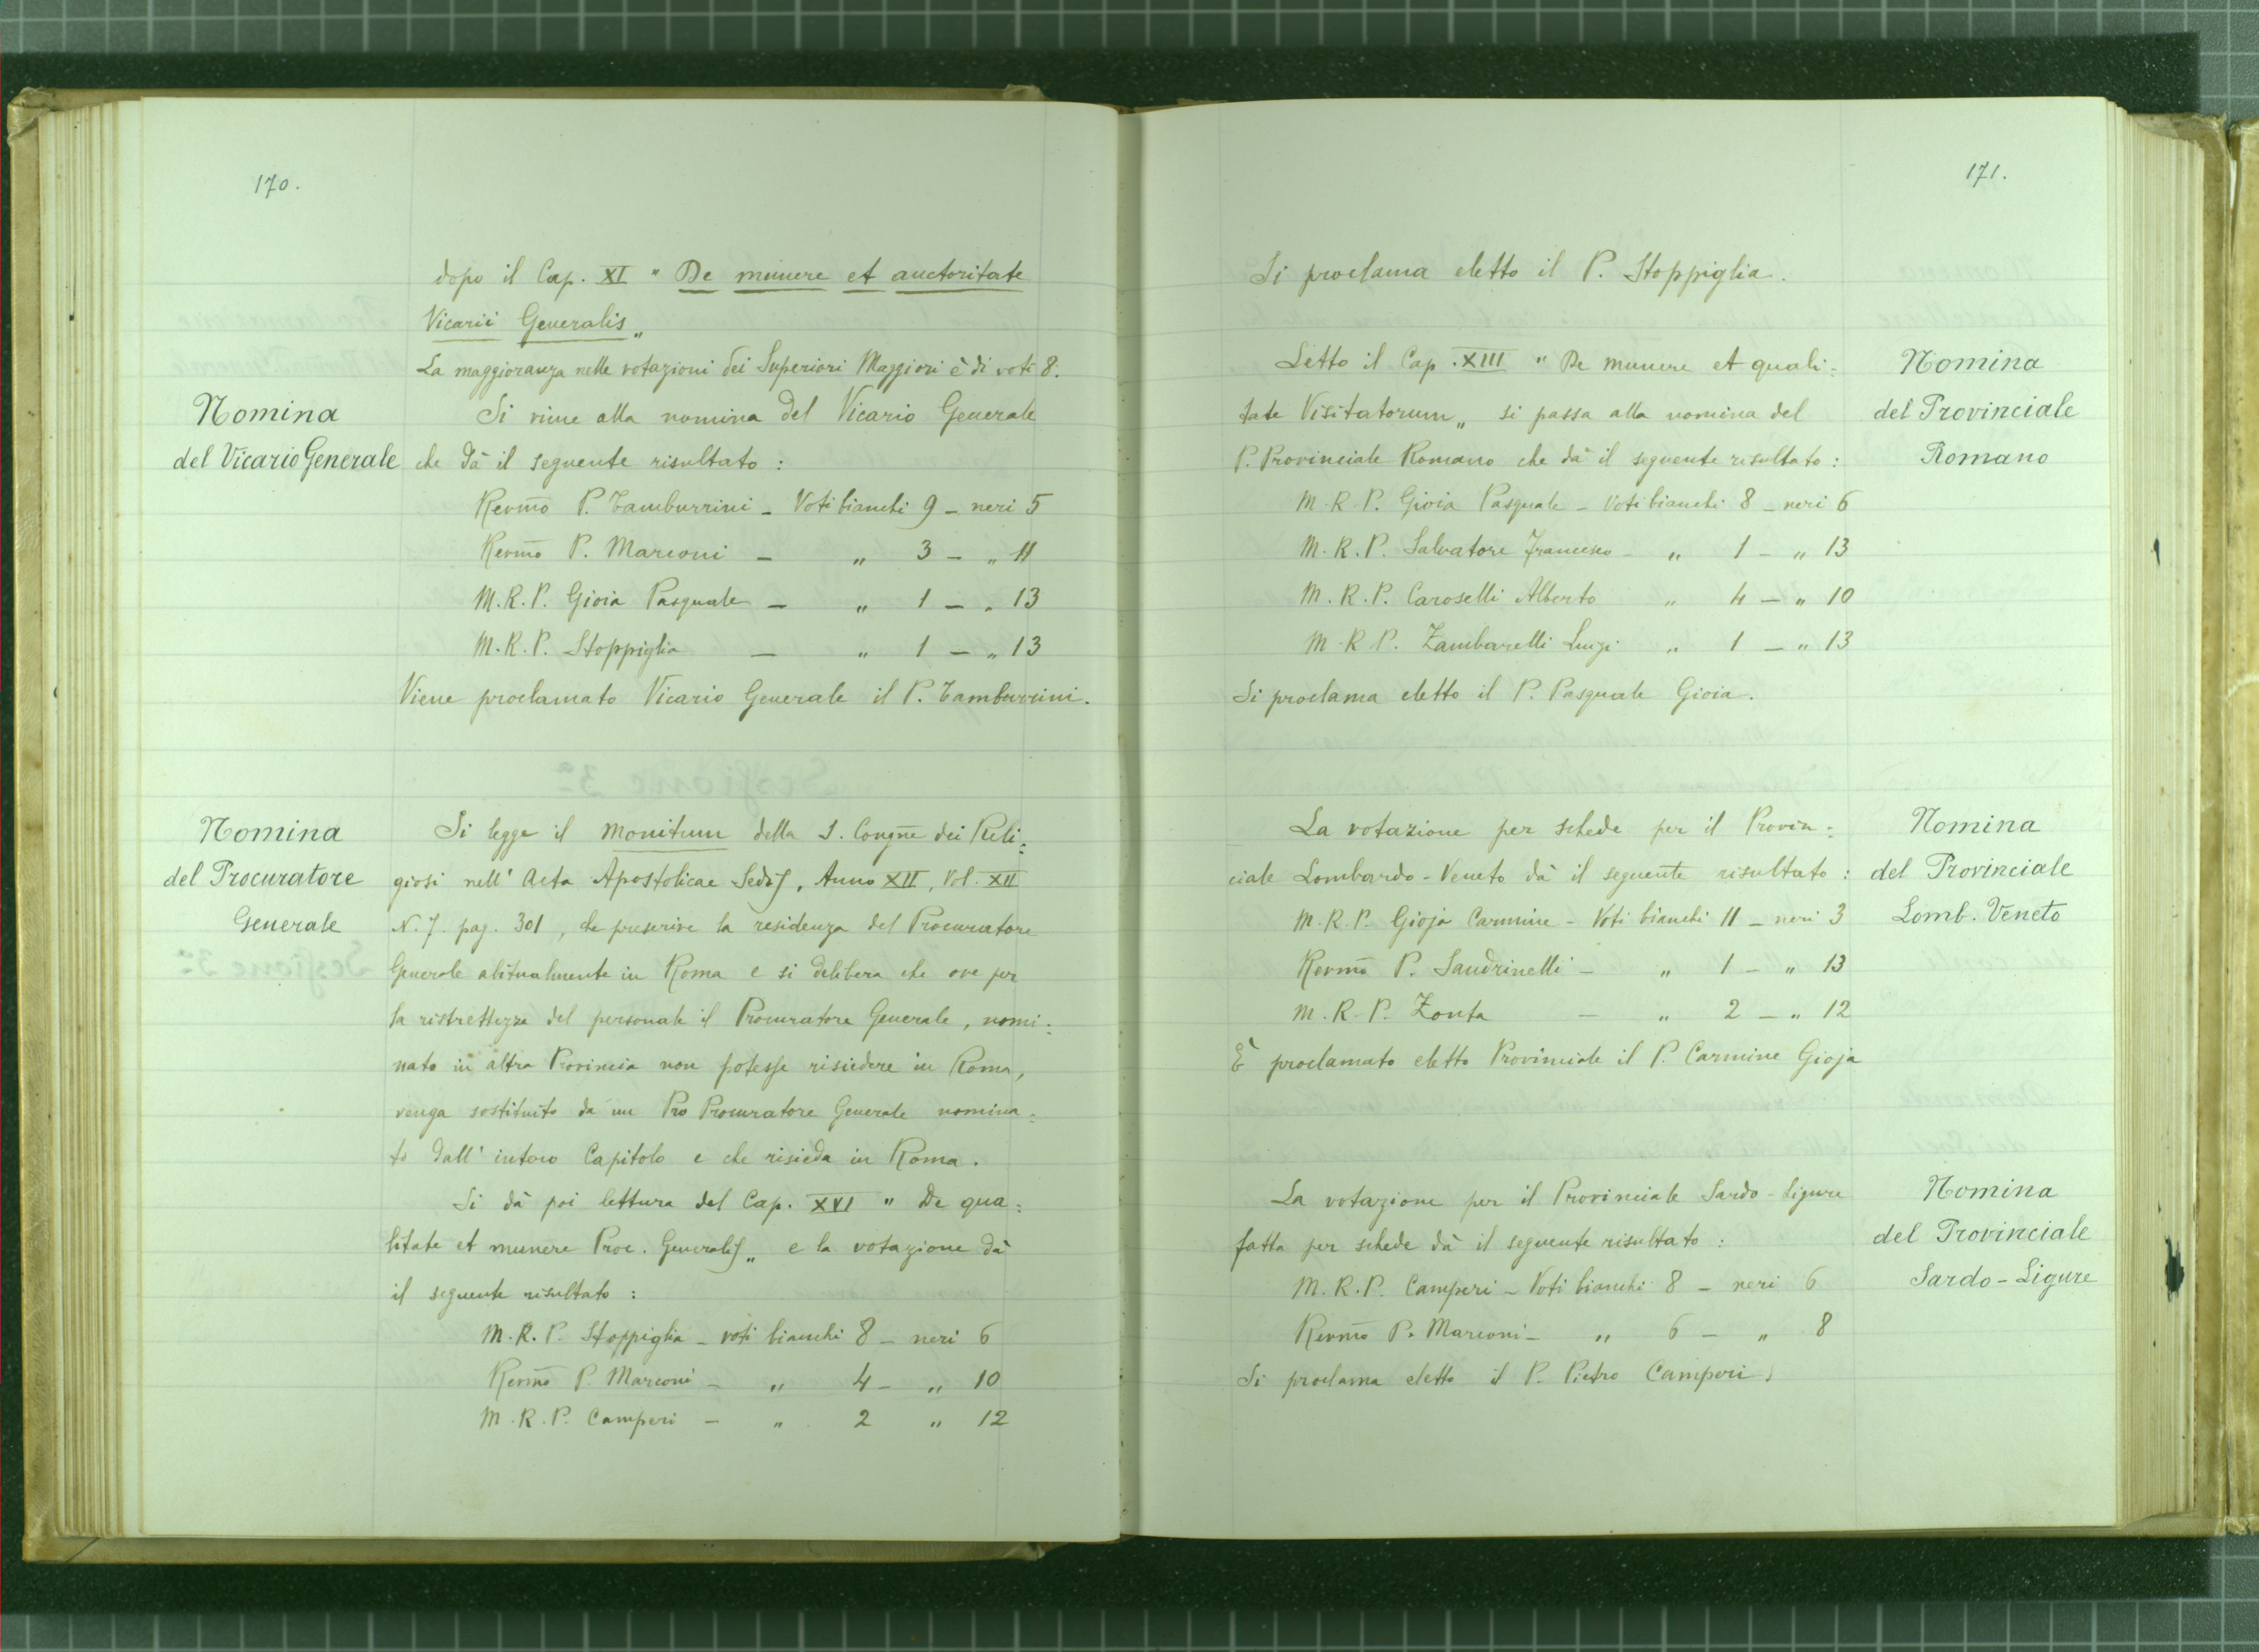 170.
dopo il Cap. XI " De munere et auctoritate
Vicarii Generalis „
La maggioranza nelle votazioni dei Superiori Maggiori è di voti 8.
Nomina
del Vicario Generale
Si viene alla nomina del Vicario Generale
che dà il seguente risultato :
Revmo P. Tamburrini - Voti bianchi 9 - neri 5
Revmo P. Marconi - „ 3 - „ 11
M.R.P. Gioia Pasquale - „ 1 - „ 13
M.R.P. Stoppiglia - „ 1 - „ 13
Viene proclamato Vicario Generale il P. Tamburrini.
Nomina
del Procuratore
Generale
Si legge il Monitum della S. Congne dei Reli=
giosi nell' Acta Apostolicae Sedis, Anno XII, Vol. XII
N. 7. pag. 301, che prescrive la residenza del Procuratore
Generale abitualmente in Roma e si delibera che ove per
la ristrettezza del personale il Procuratore Generale, nomi=
nato in altra Provincia non potesse risiedere in Roma,
venga sostituito da un Pro Procuratore Generale nomina=
to dall' intero Capitolo e che risieda in Roma.
Si dà poi lettura del Cap. XVI " De qua=
litate et munere Proc. Generalis „ e la votazione dà
il seguente risultato :
M.R.P. Stoppiglia - voti bianchi 8 - neri 6
Revmo P. Marconi - „ 4 - „ 10
M.R.P. Camperi - „ 2 „ 12
171.
Si proclama eletto il P. Stoppiglia.
Nomina
del Provinciale
Romano
Letto il Cap. XIII " De munere et quali=
tate Visitatorum „ si passa alla nomina del
P. Provinciale Romano che dà il seguente risultato :
M.R.P. Gioia Pasquale - Voti bianchi 8 - neri 6
M.R.P. Salvatore Francesco - „ 1 - „ 13
M.R.P. Caroselli Alberto „ 4 - „ 10
M.R.P. Zambarelli Luigi „ 1 - „ 13
Si proclama eletto il P. Pasquale Gioia.
Nomina
del Provinciale
Lomb. Veneto
La votazione per schede per il Provin=
ciale Lombardo-Veneto dà il seguente risultato :
M.R.P. Gioja Carmine - Voti bianchi 11 - neri 3
Revmo P. Sandrinelli - „ 1 - „ 13
M.R.P. Zonta - „ 2 - „ 12
È proclamato eletto Provinciale il P. Carmine Gioja
Nomina
del Provinciale
Sardo-Ligure
La votazione per il Provinciale Sardo-Ligure
fatta per schede dà il seguente risultato :
M.R.P. Camperi - Voti bianchi 8 - neri 6
Revmo P. Marconi - „ 6 - „ 8
Si proclama eletto il P. Pietro Camperi.